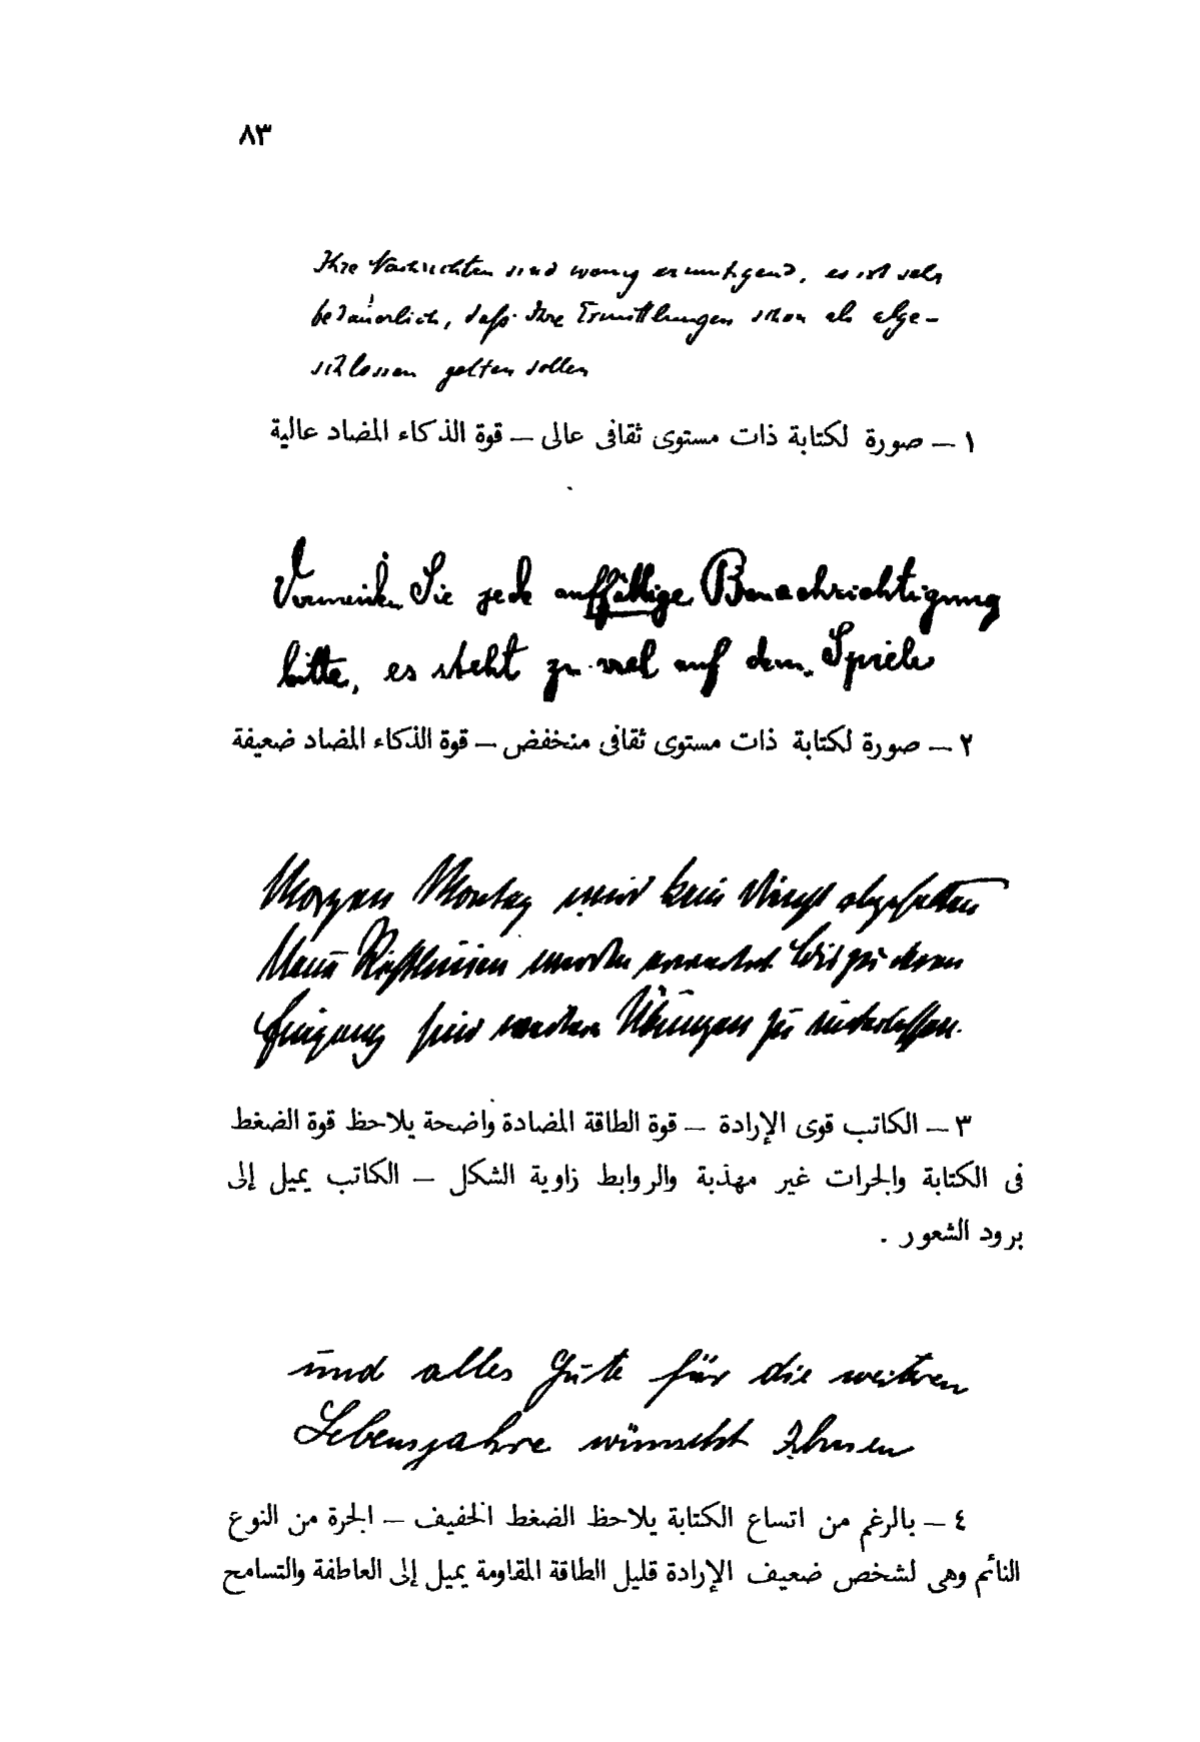 ٨٣
Ihre Nachrichten sind wenig ermutigend, es ist sehr
bedauerlich, daß Ihre Ermittlungen schon als abge-
schlossen gelten sollen
١ – صورة لكتابة ذات مستوى ثقافى عالى – قوة الذكاء المضاد عالية
Vermeiden Sie jede auffällige Benachrichtigung
bitte, es steht zu viel auf dem Spiele
٢ – صورة لكتابة ذات مستوى ثقافى منخفض – قوة الذكاء المضاد ضعيفة
Morgen Montag wird kein Dienst abgehalten
Neue Richtlinien werden erwartet Bis zu deren
Eingang sind weitere Übungen zu unterlassen.
٣ – الكاتب قوى الإرادة – قوة الطاقة المضادة واضحة يلاحظ قوة الضغط
فى الكتابة والجرات غير مهذبة والروابط زاوية الشكل – الكاتب يميل إلى
برود الشعور .
und alles Gute für die weiteren
Lebensjahre wünscht Ihnen
٤ – بالرغم من اتساع الكتابة يلاحظ الضغط الخفيف – الجرة من النوع
النائم وهى لشخص ضعيف الإرادة قليل الطاقة المقاومة يميل إلى العاطفة والتسامح